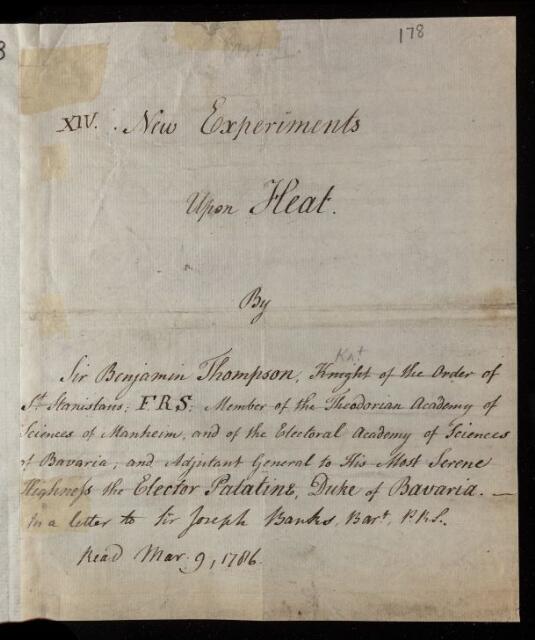 178
XIV. New Experiments
Upon Heat.
By
Knt
Sir Benjamin Thompson, Knight of the Order of
St. Stanislaus; F.R.S: Member of the Theodorian Academy of
Sciences of Manheim, and of the Electoral Academy of Sciences
of Bavaria; and Adjutant General to His Most Serene
Highness the Elector Palatine, Duke of Bavaria. —
In a letter to Sir Joseph Banks, Bart, P.R.S.
Read Mar. 9, 1786.